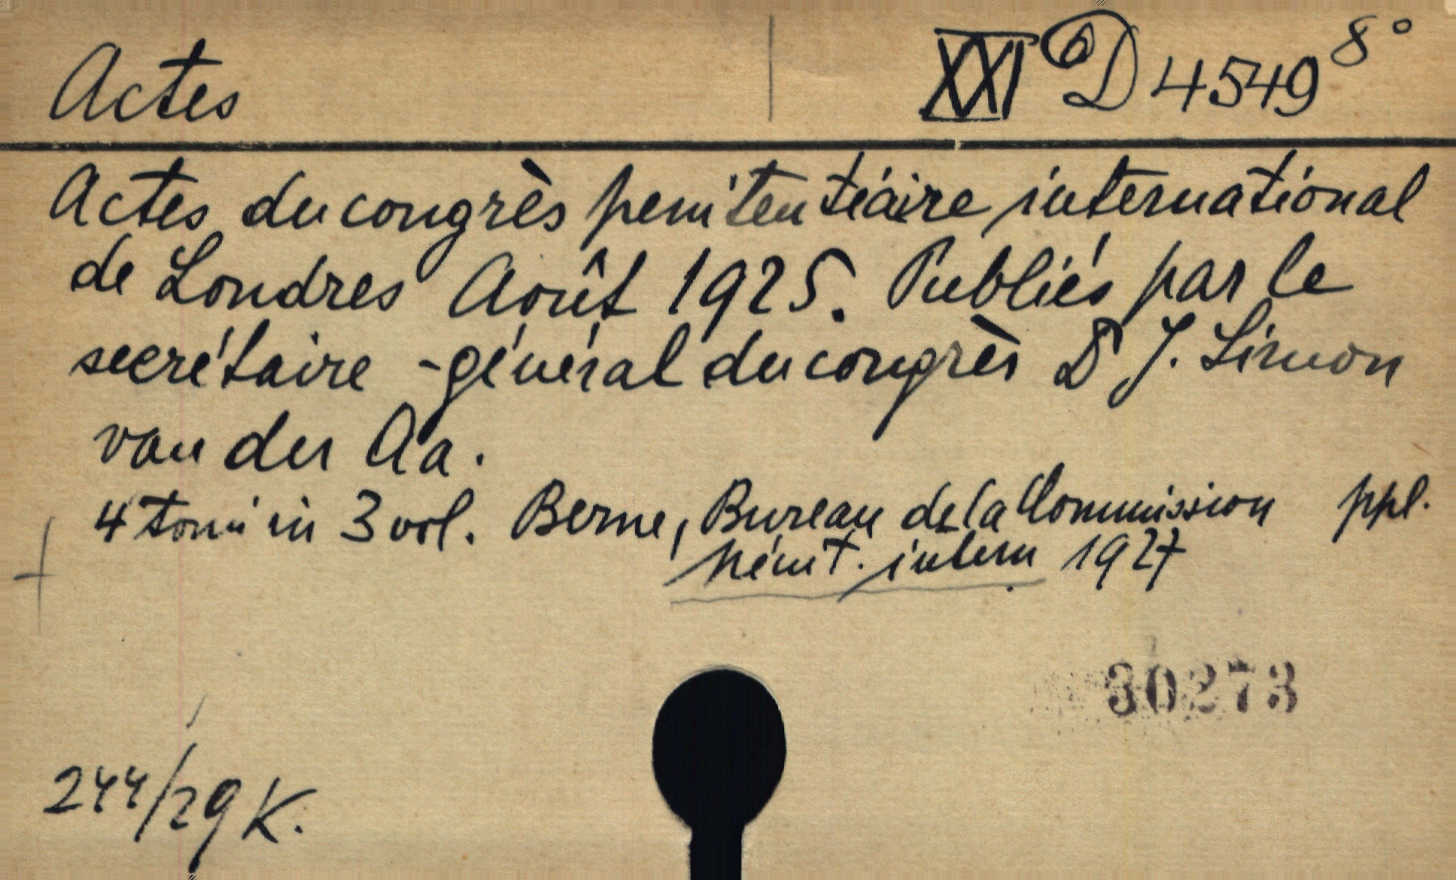 Actes
XXI 6 D 4549 8°
Actes du congrès penitentiaire international
de Londres Août 1925. Publiés par le
secrétaire-général du congrès Dr J. Simon
van der Aa.
4 tomi in 3 vol. Berne, Bureau de la Commission ppl.
pénit. intern 1927
30273
244/29 K.